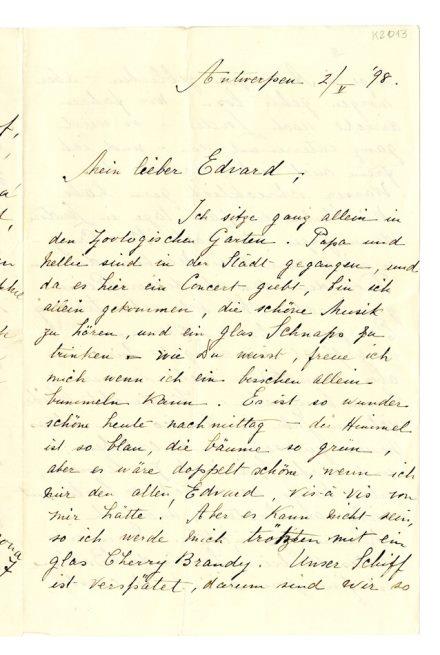 K2013
Antwerpen 2/V '98.
Mein lieber Edvard,
Ich sitze ganz allein in
den Zoologischen Garten. Papa und
Nellie sind in der Stadt gegangen, und
da es hier ein Concert giebt, bin ich
allein gekommen, die schöne Musik
zu hören, und ein glas Schnaps zu
trinken – wie Du weisst, freue ich
mich wenn ich ein bisschen allein
bummeln kann. Es ist so wunder
schöne heute nachmittag – die Himmel
ist so blau, die bäume so grün,
aber es wäre doppelt schöne, wenn ich
nur den alten, Edvard, vis-a-vis von
mir hätte. Aber es kann nicht sein,
so ich werde mich trötzen mit ein
glas Cherry Brandy. Unser Schiff
ist verspätet, darum sind wir so